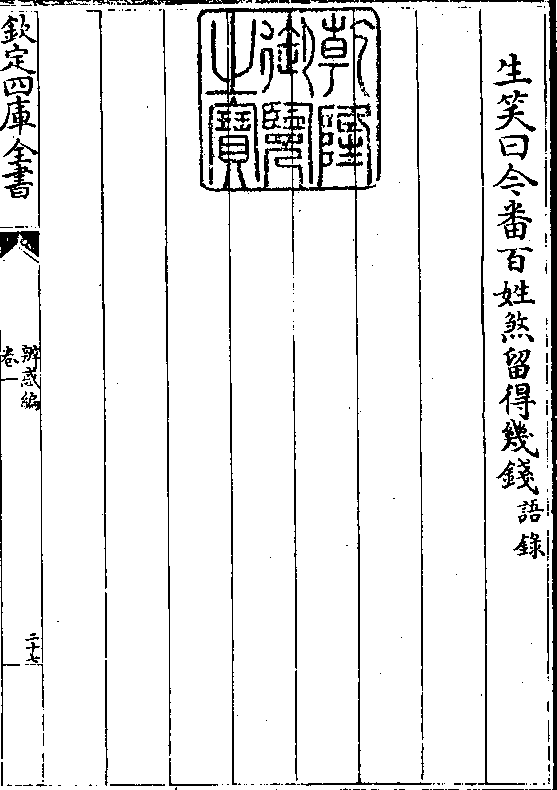 生笑曰今番百姓煞留得幾錢語錄
乾隆
御覽
之寶
欽定四庫全書
辨惑編
卷一
二十七